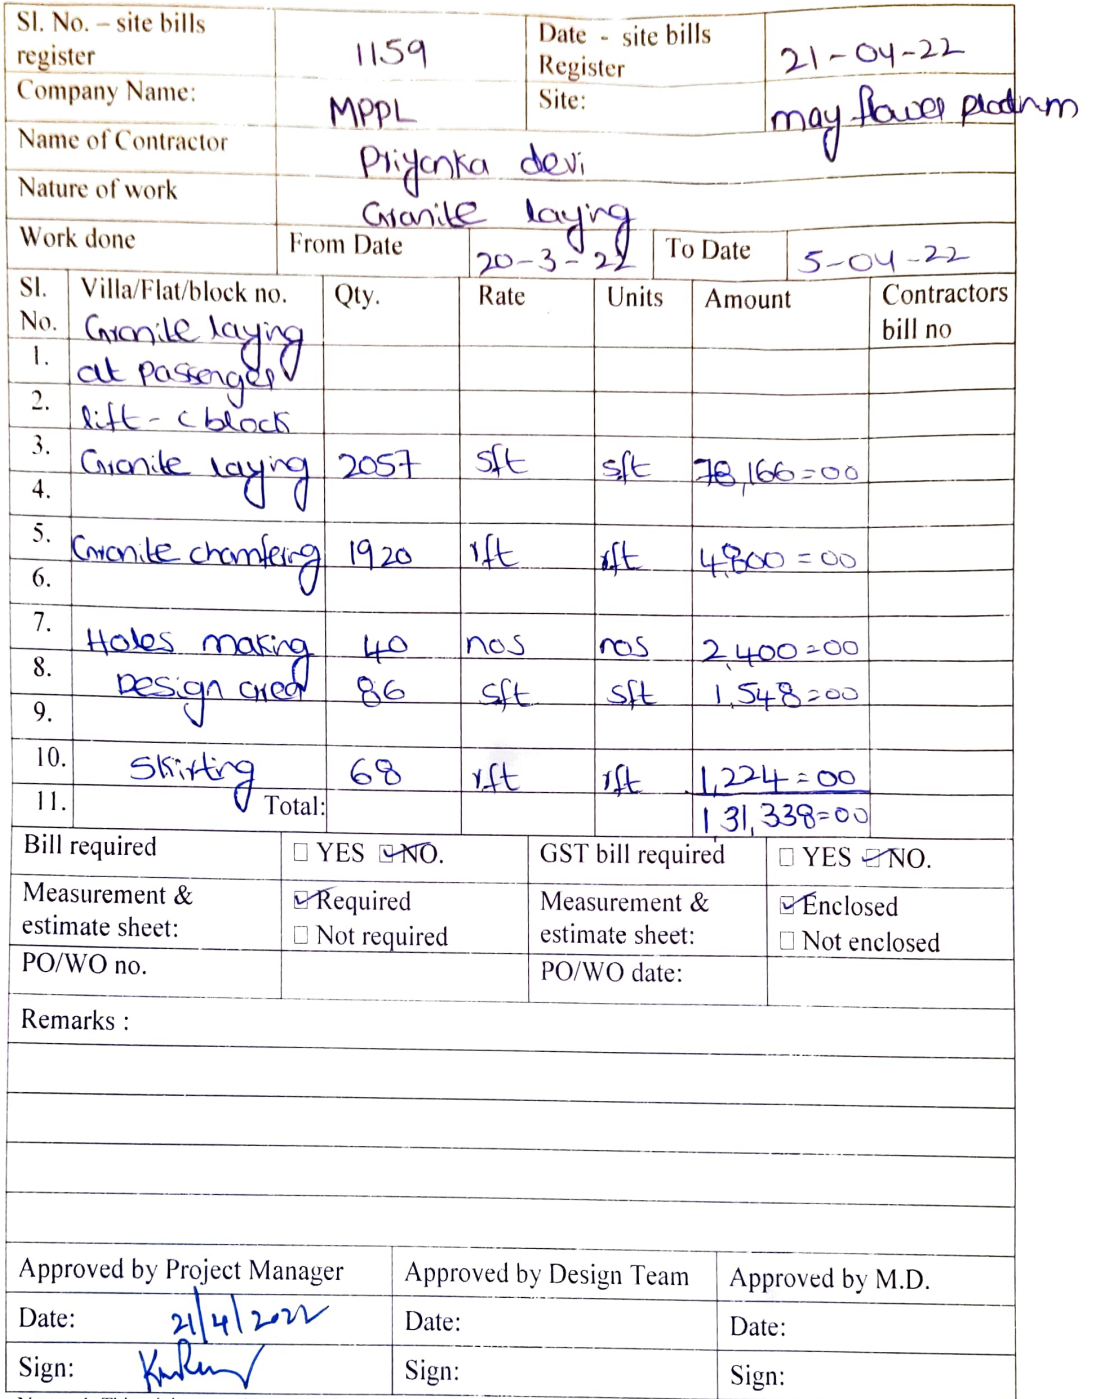 Sl. No. – site bills register 1159 Date - site bills Register 21-04-22
Company Name: MPPL Site: may flower
Name of Contractor Priyanka devi
Nature of work Granite laying
Work done From Date 20-3-22 To Date 5-04-22
Sl. No. Villa/Flat/block no. Qty. Rate Units Amount Contractors bill no
Granite laying
1. at passenger
2. lift - c block
3. Granite laying 2057 sft sft 78,166=00
4.
5. Granite chamfering 1920 rft rft 4,800=00
6.
7. Holes making 40 nos nos 2,400=00
8. Design area 86 sft sft 1,548=00
9.
10. Skirting 68 rft rft 1,224=00
11. Total: 1 31,338=00
Bill required ☐ YES ☑ NO. GST bill required ☐ YES ☑ NO.
Measurement & estimate sheet: ☑ Required ☐ Not required Measurement & estimate sheet: ☑ Enclosed ☐ Not enclosed
PO/WO no. PO/WO date:
Remarks :
Approved by Project Manager Approved by Design Team Approved by M.D.
Date: 21/4/2022 Date: Date:
Sign: Sign: Sign: